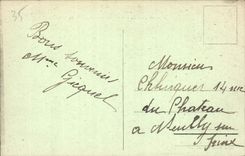 35
Bons souvenirs
Mme Guguel
Monsieur
14 rue
du Chateau
a Neuilly sur
Seine